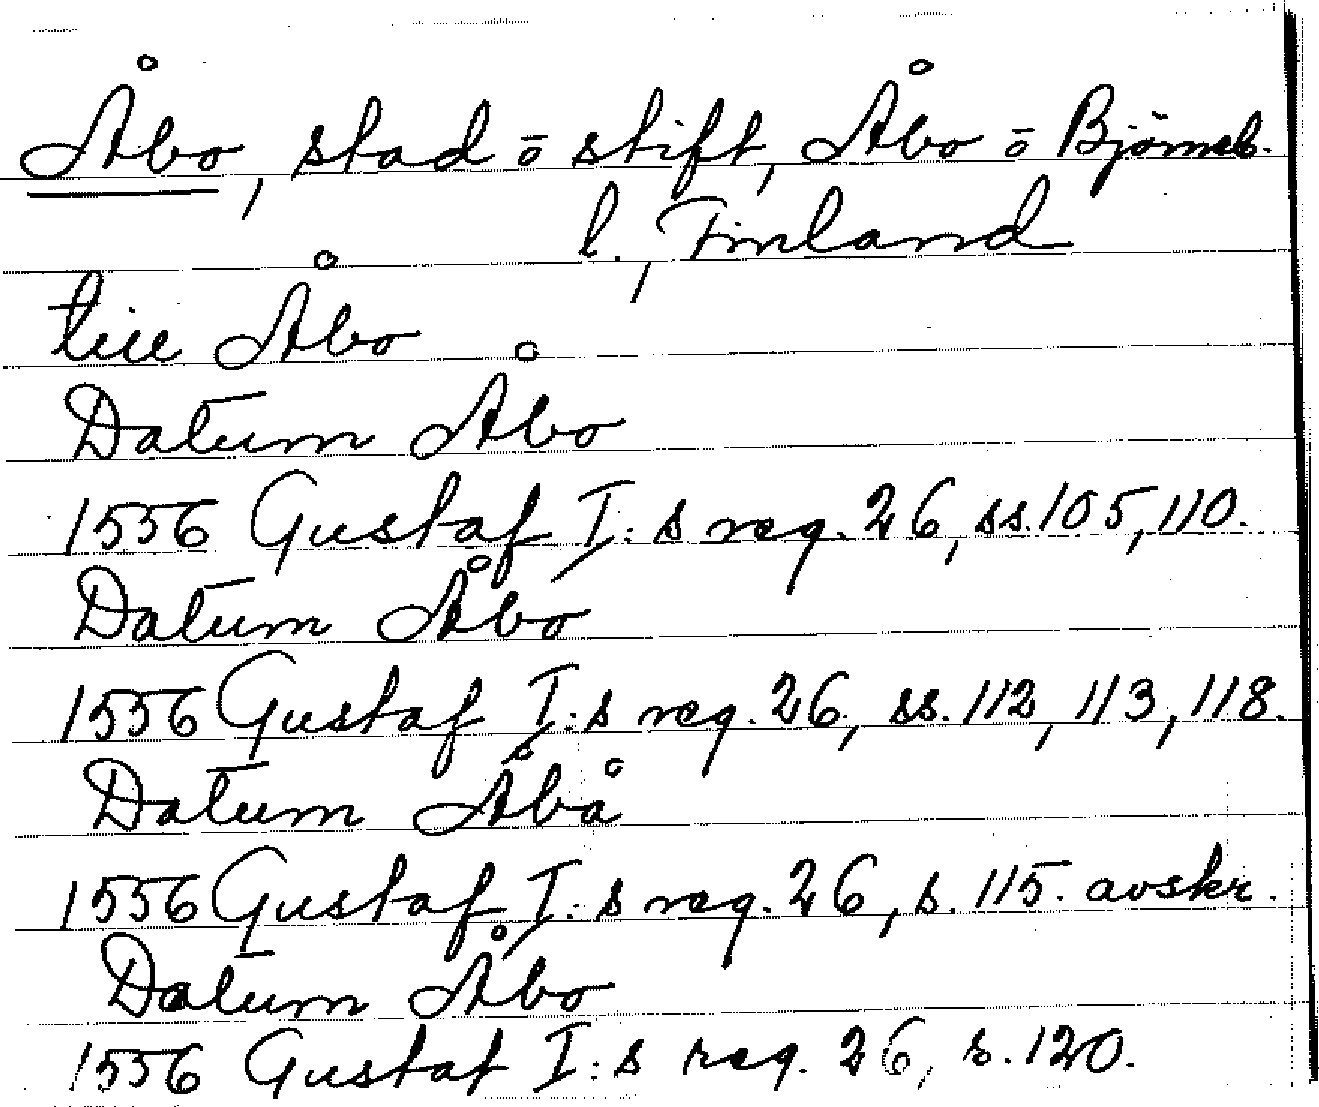 Åbo, stad ō stift, Åbo ō Björneb.
l., Finland
till Åbo
Datum Åbo
1556 Gustaf I:s reg. 26, ss. 105, 110.
Datum Åbo
1556 Gustaf I:s reg. 26, ss. 112, 113, 118.
Datum Åbå
1556 Gustaf I:s reg. 26, s. 115. avskr.
Datum Åbo
1556 Gustaf I:s reg. 26, s. 120.